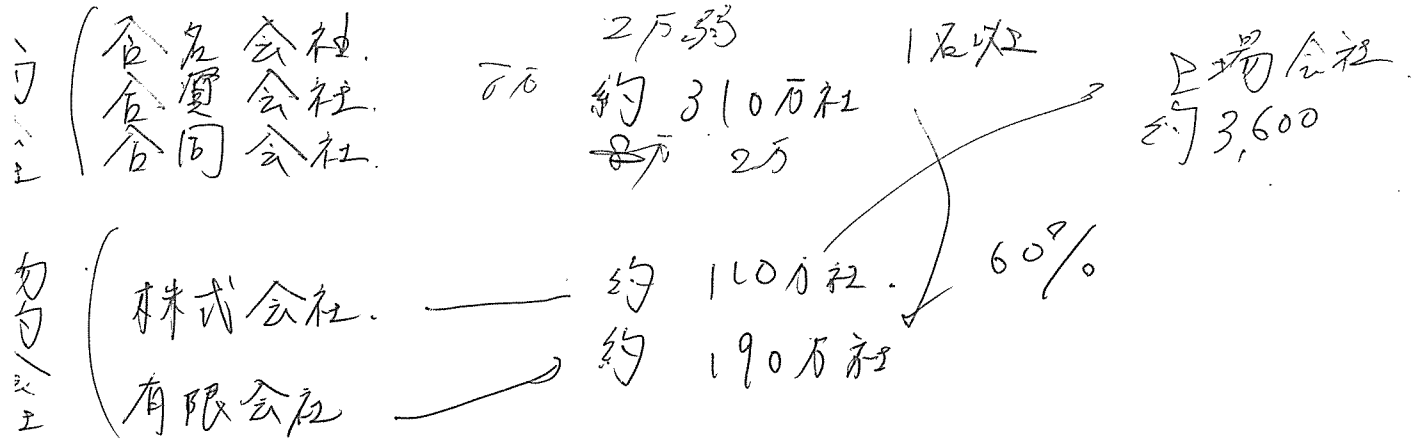 合名会社.
合資会社.
合同会社.
2万弱
約 310万社
2万
1名以上
上場会社
約3,600
株式会社.
約 110万社.
60%
有限会社
約 190万社